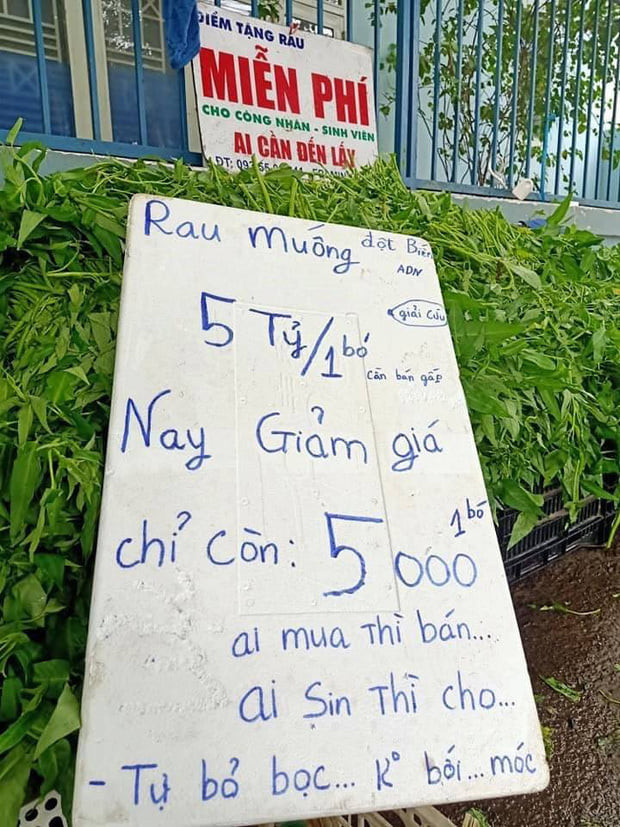 ĐIỂM TẶNG RAU
MIỄN PHÍ
CHO CÔNG NHÂN - SINH VIÊN
AI CẦN ĐẾN LẤY
ĐT:
Rau muống đột Biến
ADN
giải cứu
5 Tỷ/1 bó
cần bán gấp
Nay Giảm giá
chỉ còn: 5000 1 bó
ai mua thì bán...
ai Sin thì cho...
- Tự bỏ bọc... Kº bới... móc